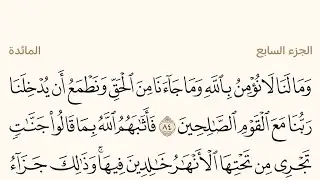 الجزء السابع المائدة
وَمَا لَنَا لَا نُؤْمِنُ بِاللَّهِ وَمَا جَآءَنَا مِنَ الْحَقِّ وَنَطْمَعُ أَن يُدْخِلَنَا
رَبُّنَا مَعَ الْقَوْمِ الصَّـٰلِحِينَ ٨٤ فَأَثَـٰبَهُمُ اللَّهُ بِمَا قَالُوا۟ جَنَّـٰتٍ
تَجْرِى مِن تَحْتِهَا الْأَنْهَـٰرُ خَـٰلِدِينَ فِيهَا ۚ وَذَٰلِكَ جَزَآءُ